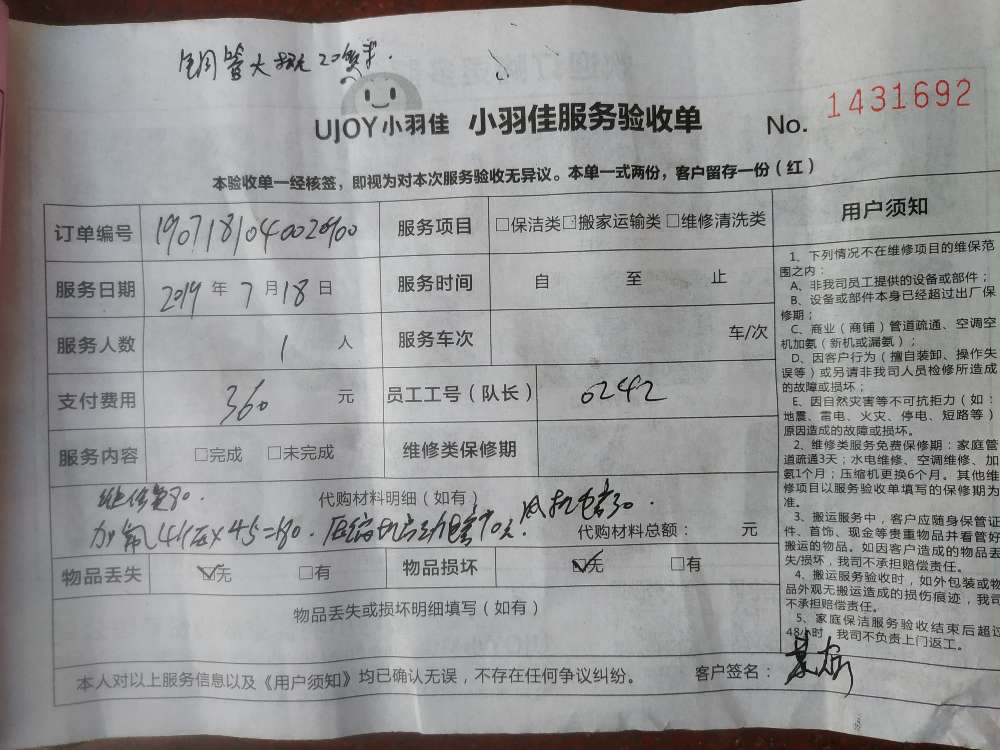 铜管大概20余米.
UJOY小羽佳 小羽佳服务验收单 No. 1431692
本验收单一经核签，即视为对本次服务验收无异议。本单一式两份，客户留存一份（红）
订单编号 服务项目 □保洁类□搬家运输类 □维修清洗类
服务日期 2019 年 7 月 18 日 服务时间 自 至 止
服务人数 1 人 服务车次 车/次
支付费用 360 元 员工工号（队长） 0242
服务内容 □完成 □未完成 维修类保修期
代购材料明细（如有）
代购材料总额： 元
物品丢失 ☑无 □有 物品损坏 ☑无 □有
物品丢失或损坏明细填写（如有）
本人对以上服务信息以及《用户须知》均已确认无误，不存在任何争议纠纷。 客户签名：
用户须知
1、下列情况不在维修项目的维保范
围之内：
A、非我司员工提供的设备或部件；
B、设备或部件本身已经超过出厂保
修期；
C、商业（商铺）管道疏通、空调空
机加氨（新机或漏氨）；
D、因客户行为（擅自装卸、操作失
误等）或另请非我司人员检修所造成
的故障或损坏；
E、因自然灾害等不可抗拒力（如：
地震、雷电、火灾、停电、短路等）
原因造成的故障或损坏。
2、维修类服务免费保修期：家庭管
道疏通3天；水电维修、空调维修、加
氨1个月；压缩机更换6个月。其他维
修项目以服务验收单填写的保修期为
准。
3、搬运服务中，客户应随身保管证
件、首饰、现金等贵重物品并看管好
搬运的物品。如因客户造成的物品丢
失/损坏，我司不承担赔偿责任。
4、搬运服务验收时，如外包装或物
品外观无搬运造成的损伤痕迹，我司
不承担赔偿责任。
5、家庭保洁服务验收结束后超过
48小时，我司不负责上门返工。